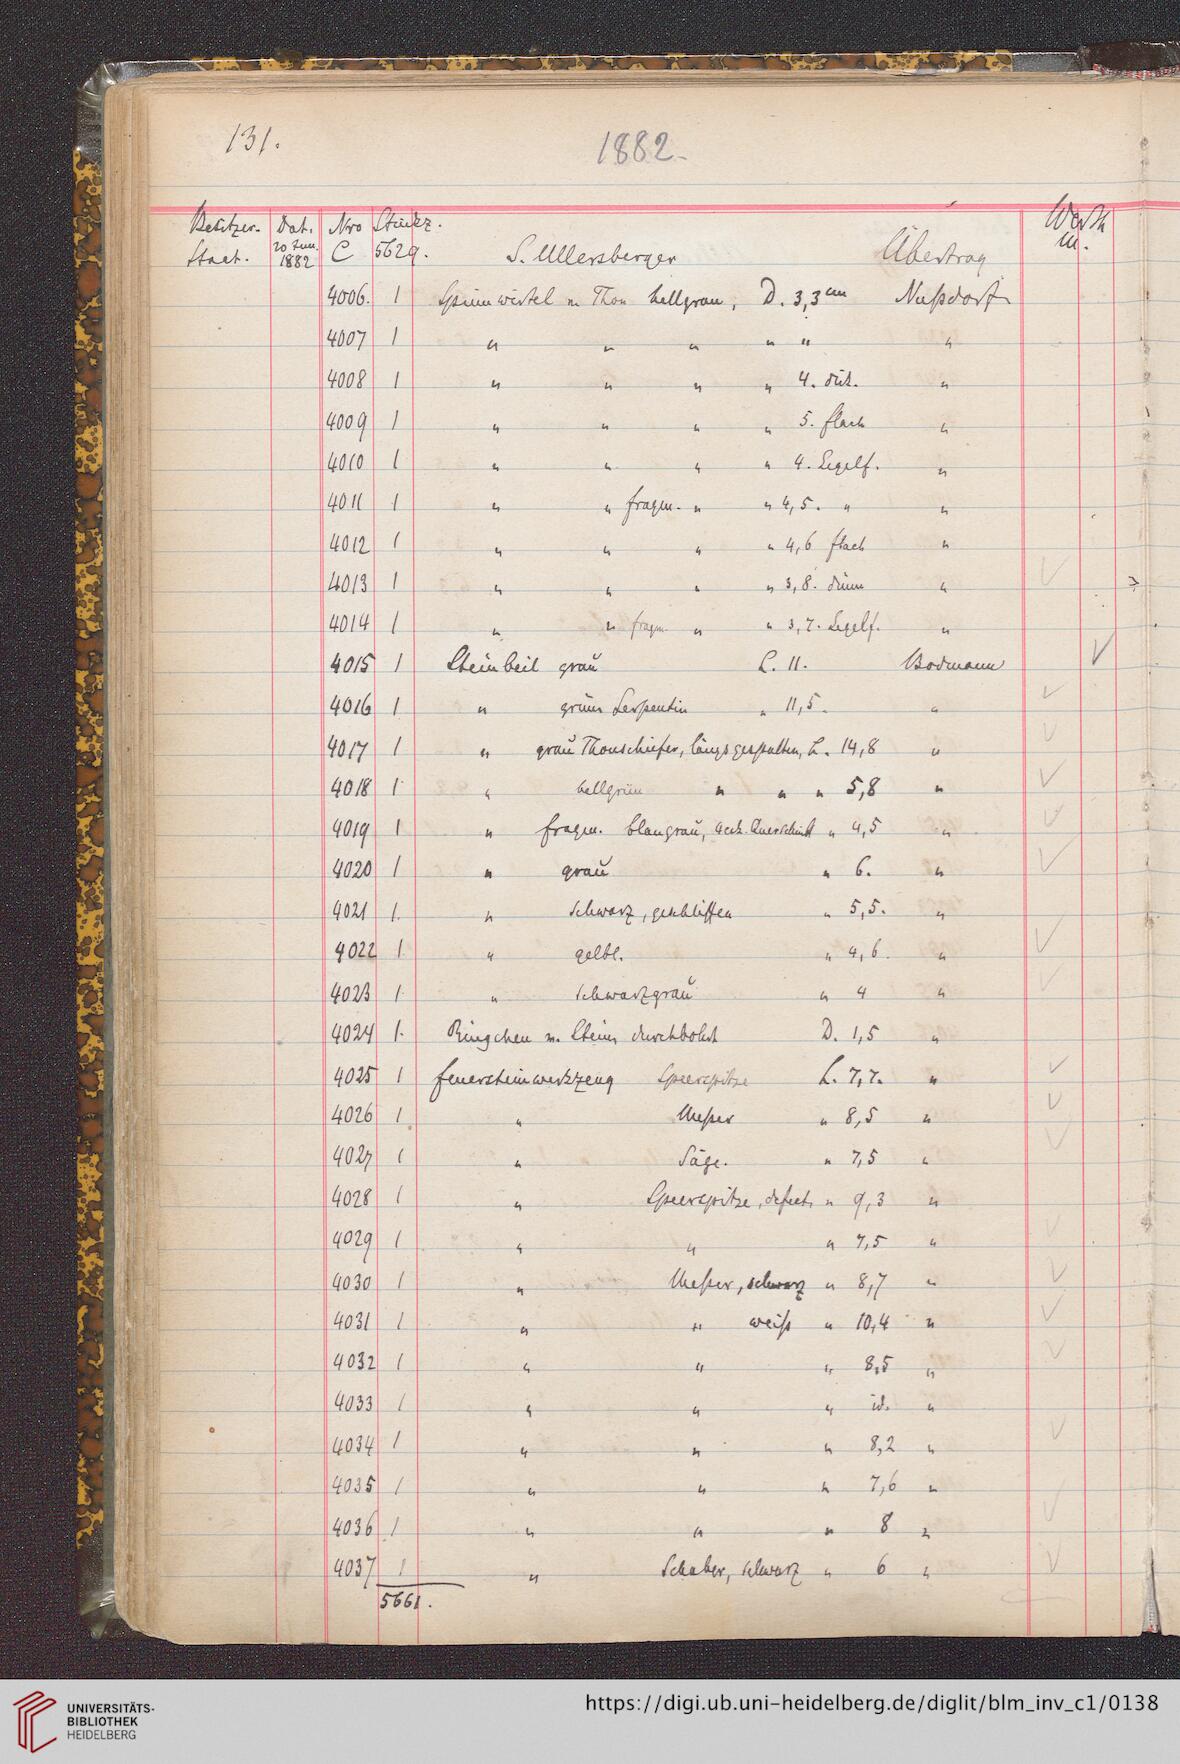 131.
1882.
Besitzer. Dat. Nro Stückz. Werth
Staat. 20 Jun. 1882 C 5629. S. Ullersberger Übertrag M.
4006. 1 Spinnwirtel v. Thon hellgrau, D. 3,3 cm Nußdorf
4007 1 " " " " " "
4008 1 " " " " 4. dick. "
4009 1 " " " " 5. flach "
4010 1 " " " " 4. Kegelf. "
4011 1 " " fragm. " " 4,5. " "
4012 1 " " " " 4,6 flach "
4013 1 " " " " 3,8. dünn "
4014 1 " " fragm. " " 3,7. Kegelf. "
4015 1 Steinbeil grau L. 11. Bodmann
4016 1 " grün Serpentin " 11,5. "
4017 1 " grau Thonschiefer, längsgespalten, L. 14,8 "
4018 1 " hellgrün " " " 5,8 "
4019 1 " fragm. blaugrau, 4eck. Querschnitt " 4,5 "
4020 1 " grau " 6. "
4021 1. " schwarz, geschliffen " 5,5. "
4022 1. " gelbl. " 4,6. "
4023 1. " schwarzgrau " 4 "
4024 1. Ringchen v. Stein, durchbohrt D. 1,5 "
4025 1 Feuersteinwerkzeug Speerspitze L. 7,7. "
4026 1 " Meßer " 8,5 "
4027 1 " Säge. " 7,5 "
4028 1 " Speerspitze, defect, " 9,3 "
4029 1 " " " 7,5 "
4030 1 " Meßer, schwarz " 8,7 "
4031 1 " " weiß " 10,4 "
4032 1 " " " 8,5 "
4033 1 " " " id. "
4034 1 " " " 8,2 "
4035 1 " " " 7,6 "
4036 1 " " " 8 "
4037 1 " Schaber, schwarz " 6 "
5661.
UNIVERSITÄTS-
BIBLIOTHEK
HEIDELBERG
https://digi.ub.uni-heidelberg.de/diglit/blm_inv_c1/0138